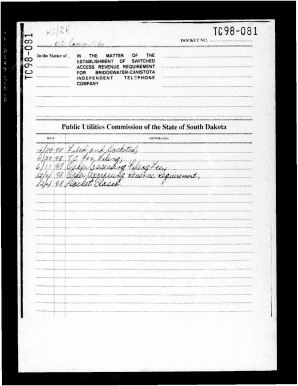 TC98-081
DOCKET NO.
TC98-081
In the Matter of
IN THE MATTER OF THE
ESTABLISHMENT OF SWITCHED
ACCESS REVENUE REQUIREMENT
FOR BRIDGEWATER-CANISTOTA
INDEPENDENT TELEPHONE
COMPANY
Public Utilities Commission of the State of South Dakota
DATE MEMORANDA
98 Filed and Docketed;
98 T.C. Fax Filing;
6/11 98 Order Assessing Filing Fee;
98 Order Approving Revenue Requirement;
98 Docket Closed.